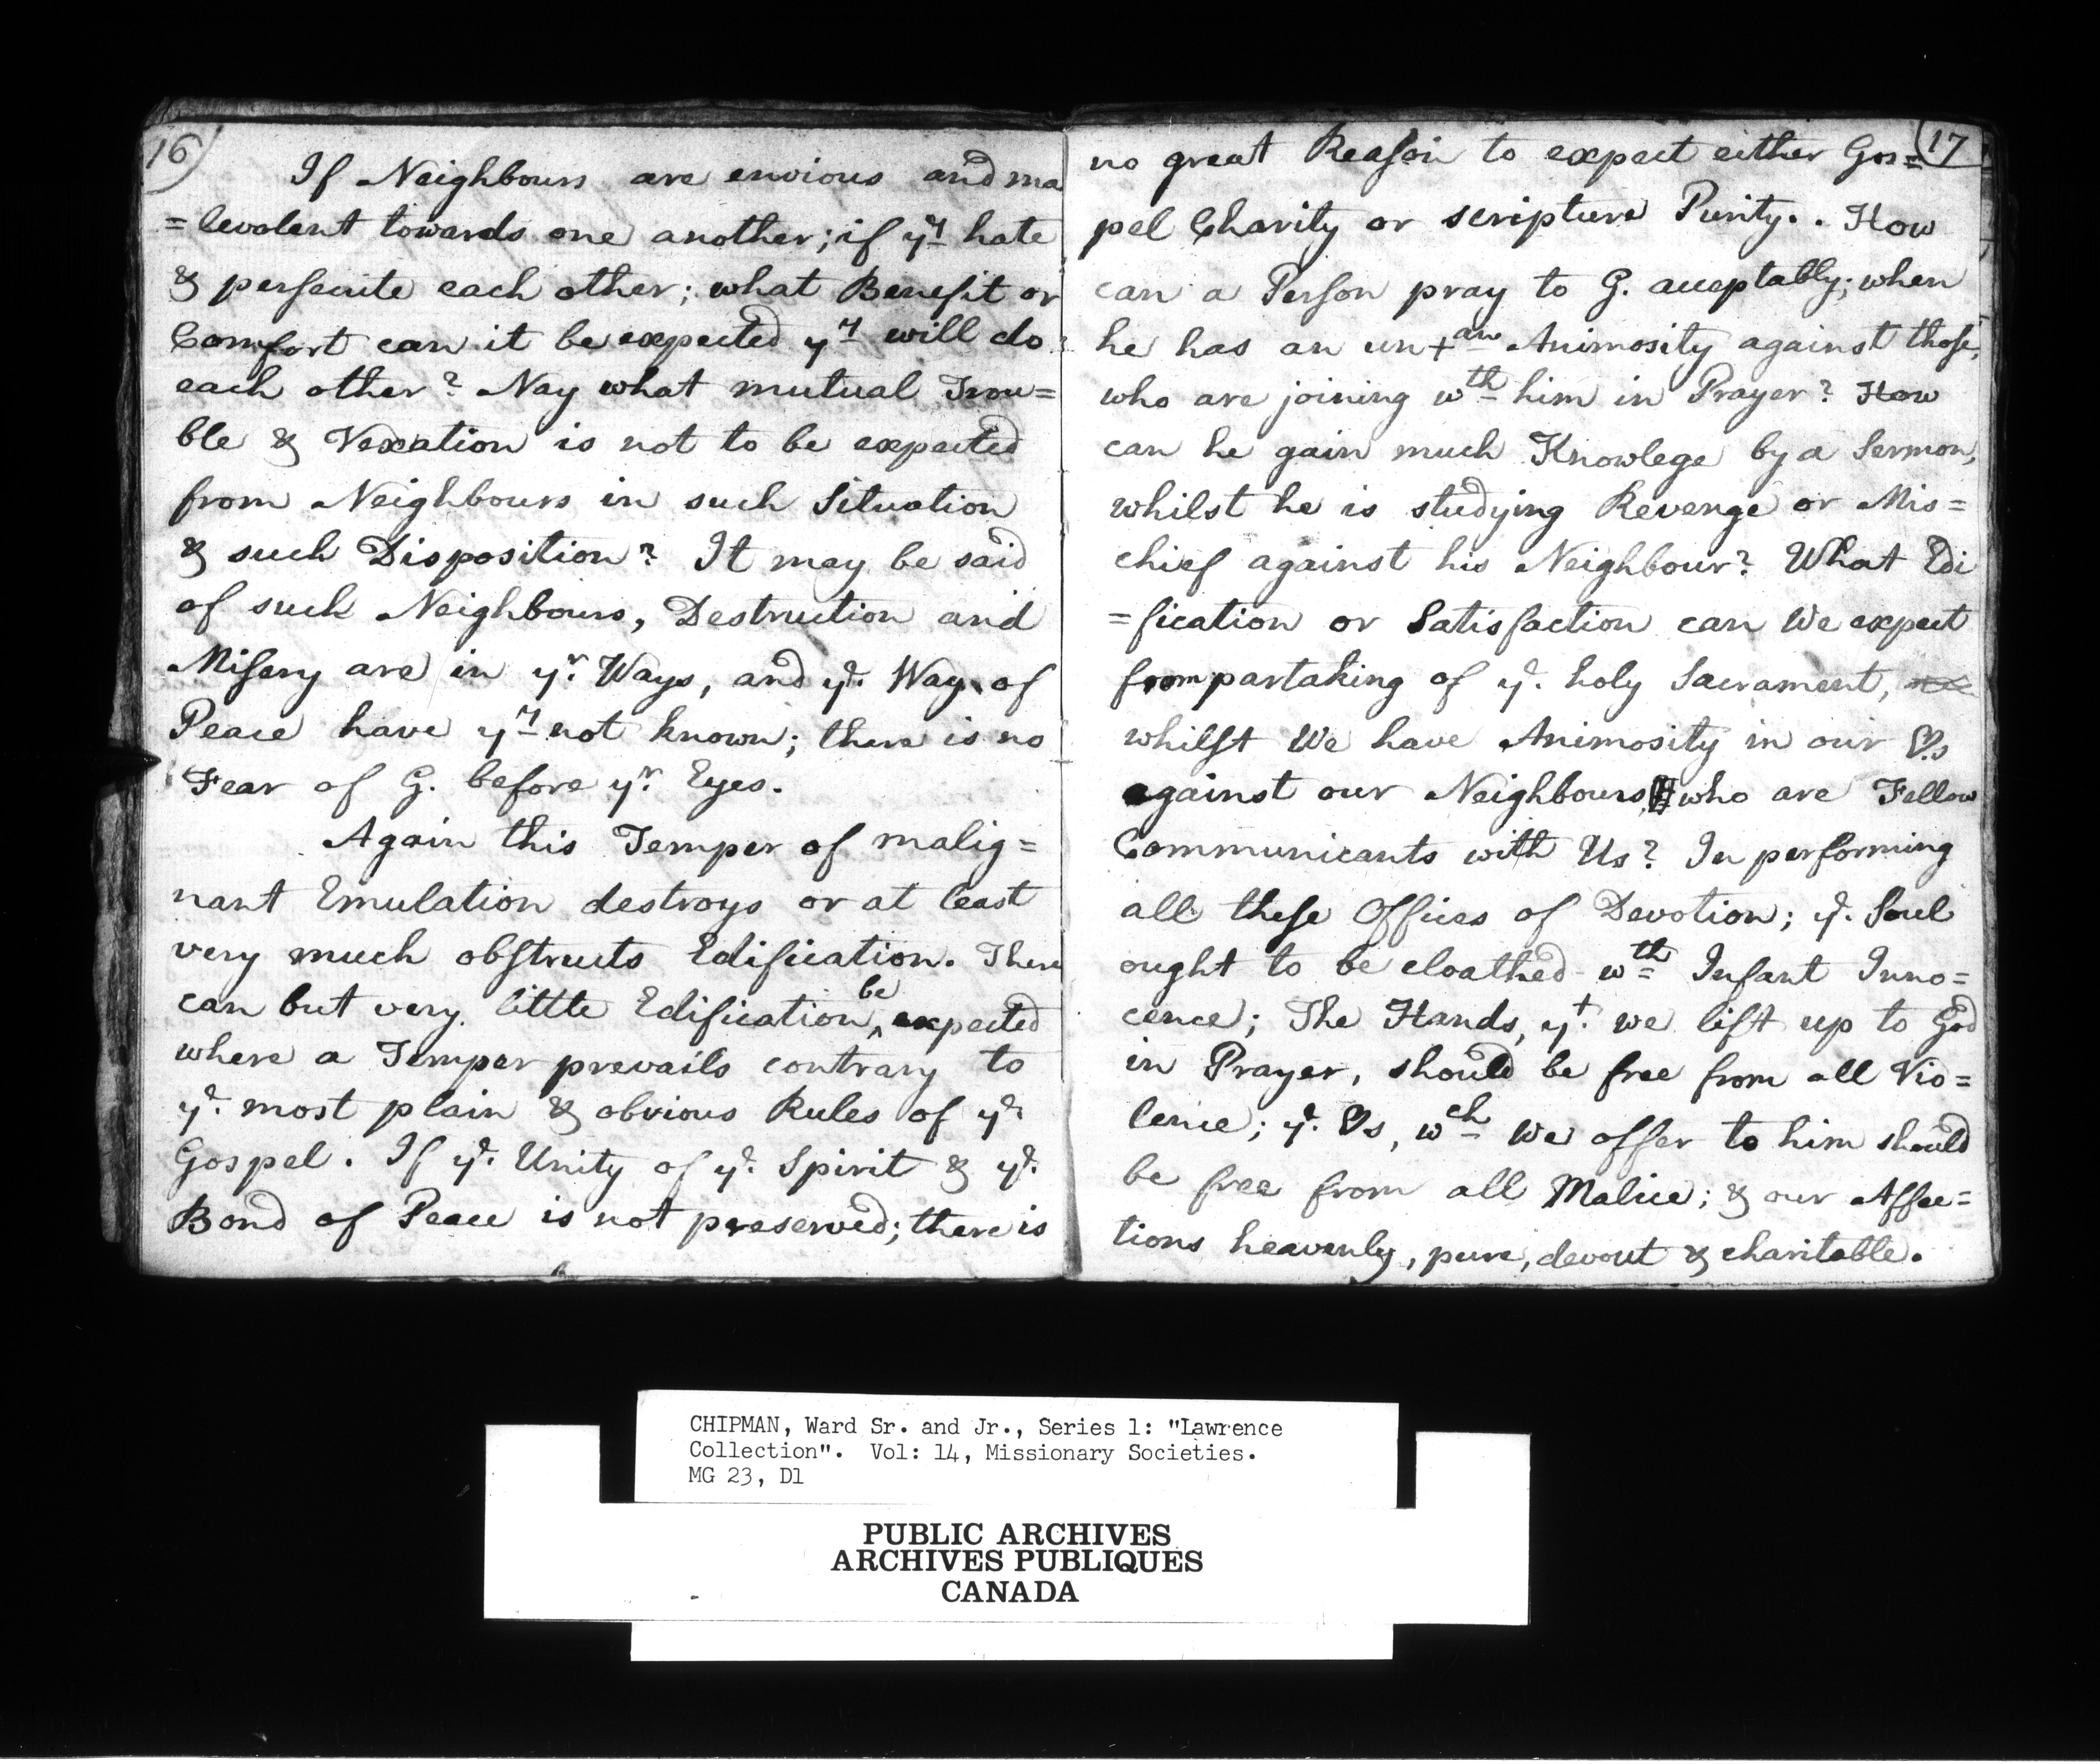 16
If Neighbours are envious and ma
=levolent towards one another; if yy hate
& persecute each other; what Benefit or
Comfort can it be expected yy will do
each other? Nay what mutual Trou=
ble & Vexation is not to be expected
from Neighbours in such Situation
& such Disposition? It may be said
of such Neighbours, Destruction and
Misery are in yr. Ways, and ye. Way of
Peace have yy not known; there is no
Fear of G. before yr. Eyes.
Again this Temper of malig=
nant Emulation destroys or at least
very much obstructs Edification. There
can but very little Edification be expected
where a Temper prevails contrary to
ye. most plain & obvious Rules of ye.
Gospel. If ye. Unity of ye. Spirit & ye.
Bond of Peace is not preserved; there is
17
no great Reason to expect either Gos=
pel Charity or scripture Purity. . How
can a Person pray to G. acceptably; when
he has an un+an Animosity against those,
who are joining wth him in Prayer? How
can he gain much Knowlege by a Sermon,
whilst he is studying Revenge or Mis=
chief against his Neighbour? What Edi
=fication or Satisfaction can We expect
from partaking of ye. holy Sacrament,
whilst We have Animosity in our ♡s
against our Neighbours, who are Fellow
Communicants with Us? In performing
all these Offices of Devotion; ye. Soul
ought to be cloathed wth Infant Inno=
cence; The Hands, yt. we lift up to God
in Prayer, should be free from all Vio=
lence; ye. ♡s, wch We offer to him should
be free from all Malice; & our Affec=
tions heavenly, pure, devout & charitable.
CHIPMAN, Ward Sr. and Jr., Series 1: "Lawrence
Collection". Vol: 14, Missionary Societies.
MG 23, D1
PUBLIC ARCHIVES
ARCHIVES PUBLIQUES
CANADA